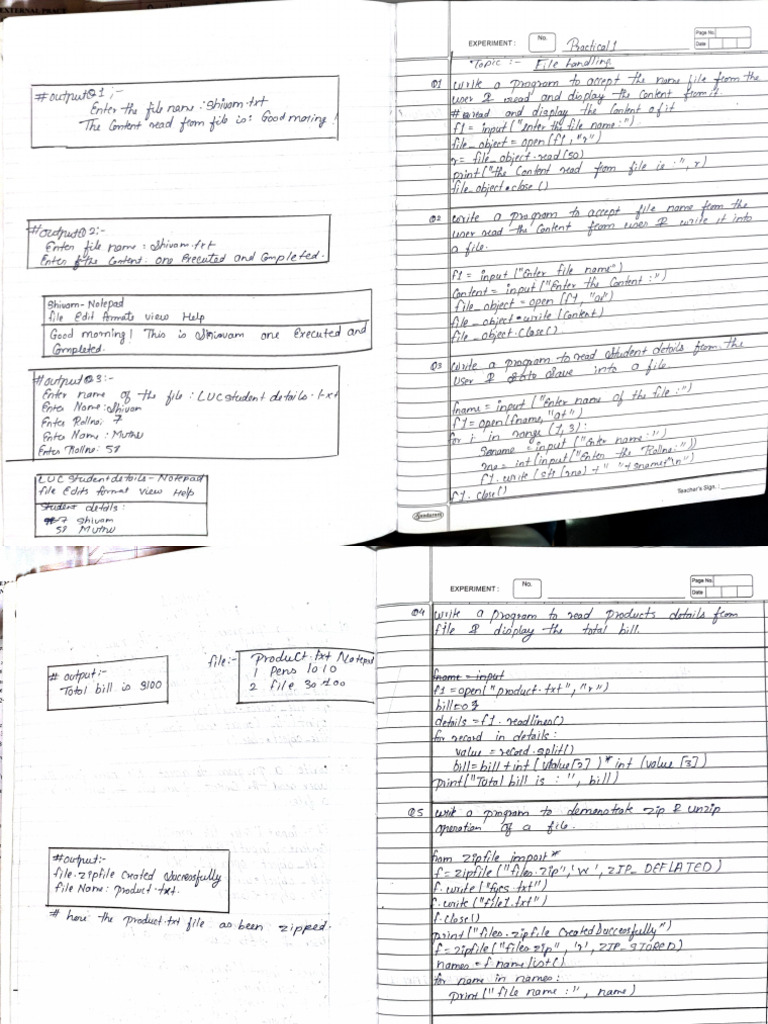 EXTERNAL PRACT
#output Q1 ;-
Enter the file name : Shivam.txt
The Content read from file is: Good moring !
#output Q2:-
Enter file name : Shivam.txt
Enter the Content. one Executed and Completed.
Shivam-Notepad
file Edit formate view Help
Good morning! This is Shivam one Executed and
Completed.
#output Q3:-
Enter name of the file : LUC student details.txt
Enter Name: Shivam
Enter Rollno: 7
Enter Name : Muthu
Enter Rollno: 58
LUC Student details - Notepad
file Edits format view Help
Student details :
7 Shivam
58 Muthu
EXPERIMENT :
No.
Practical 1
Page No.
Date
Topic :- File handling
Q1 Write a program to accept the name file from the
user & read and display the content from it
# read and display the Content of it
f1 = input ("enter the file name :")
file_object = open(f1, "r")
r= file_object.read(50)
print("the Content read from file is :", r)
file_object.close ()
Q2 Write a program to accept file name from the
user read the Content from user & write it into
a file.
f1 = input ("Enter file name")
Content = input ("Enter the Content :")
file_object = open (f1, "a")
file_object.write (Content)
file_object.close()
Q3 Write a program to read Student details from the
user & save into a file
fname = input ("Enter name of the file :")
f1 = open(fname, "at")
for i in range (1,3):
Sname = input ("Enter name:")
rno = int(input("Enter the Rollno:"))
f1.write (str(rno) + " "+sname+"\n")
f1.close()
Teacher's Sign. :
Sundaram
# output:-
Total bill is 3100
file:-
Product.txt Notepad
1 pens 10 10
2 file 30 100
#output:-
file.zipfile Created Successfully
file Name: product.txt.
# here the product.txt file as been zipped.
EXPERIMENT :
No.
Page No.
Date
Q4 Write a program to read products details from
file & display the total bill.
fname = input
f1=open("product.txt","r")
bill=0
details = f1.readlines()
for record in details:
value = record.split()
bill= bill + int (value[2] )* int (value [3])
print("Total bill is : ", bill)
Q5 Write a program to demonstrate zip & unzip
operation of a file.
from zipfile import*
f= zipfile ("files.zip", 'w', ZIP_DEFLATED)
f.write ("fycs.txt")
f.write ("file1.txt")
f.close()
print("files.zipfile Created Successfully")
f= zipfile ("files zip", 'r', ZIP_STORED)
names = f namelist()
for name in names:
print ("file name :", name)